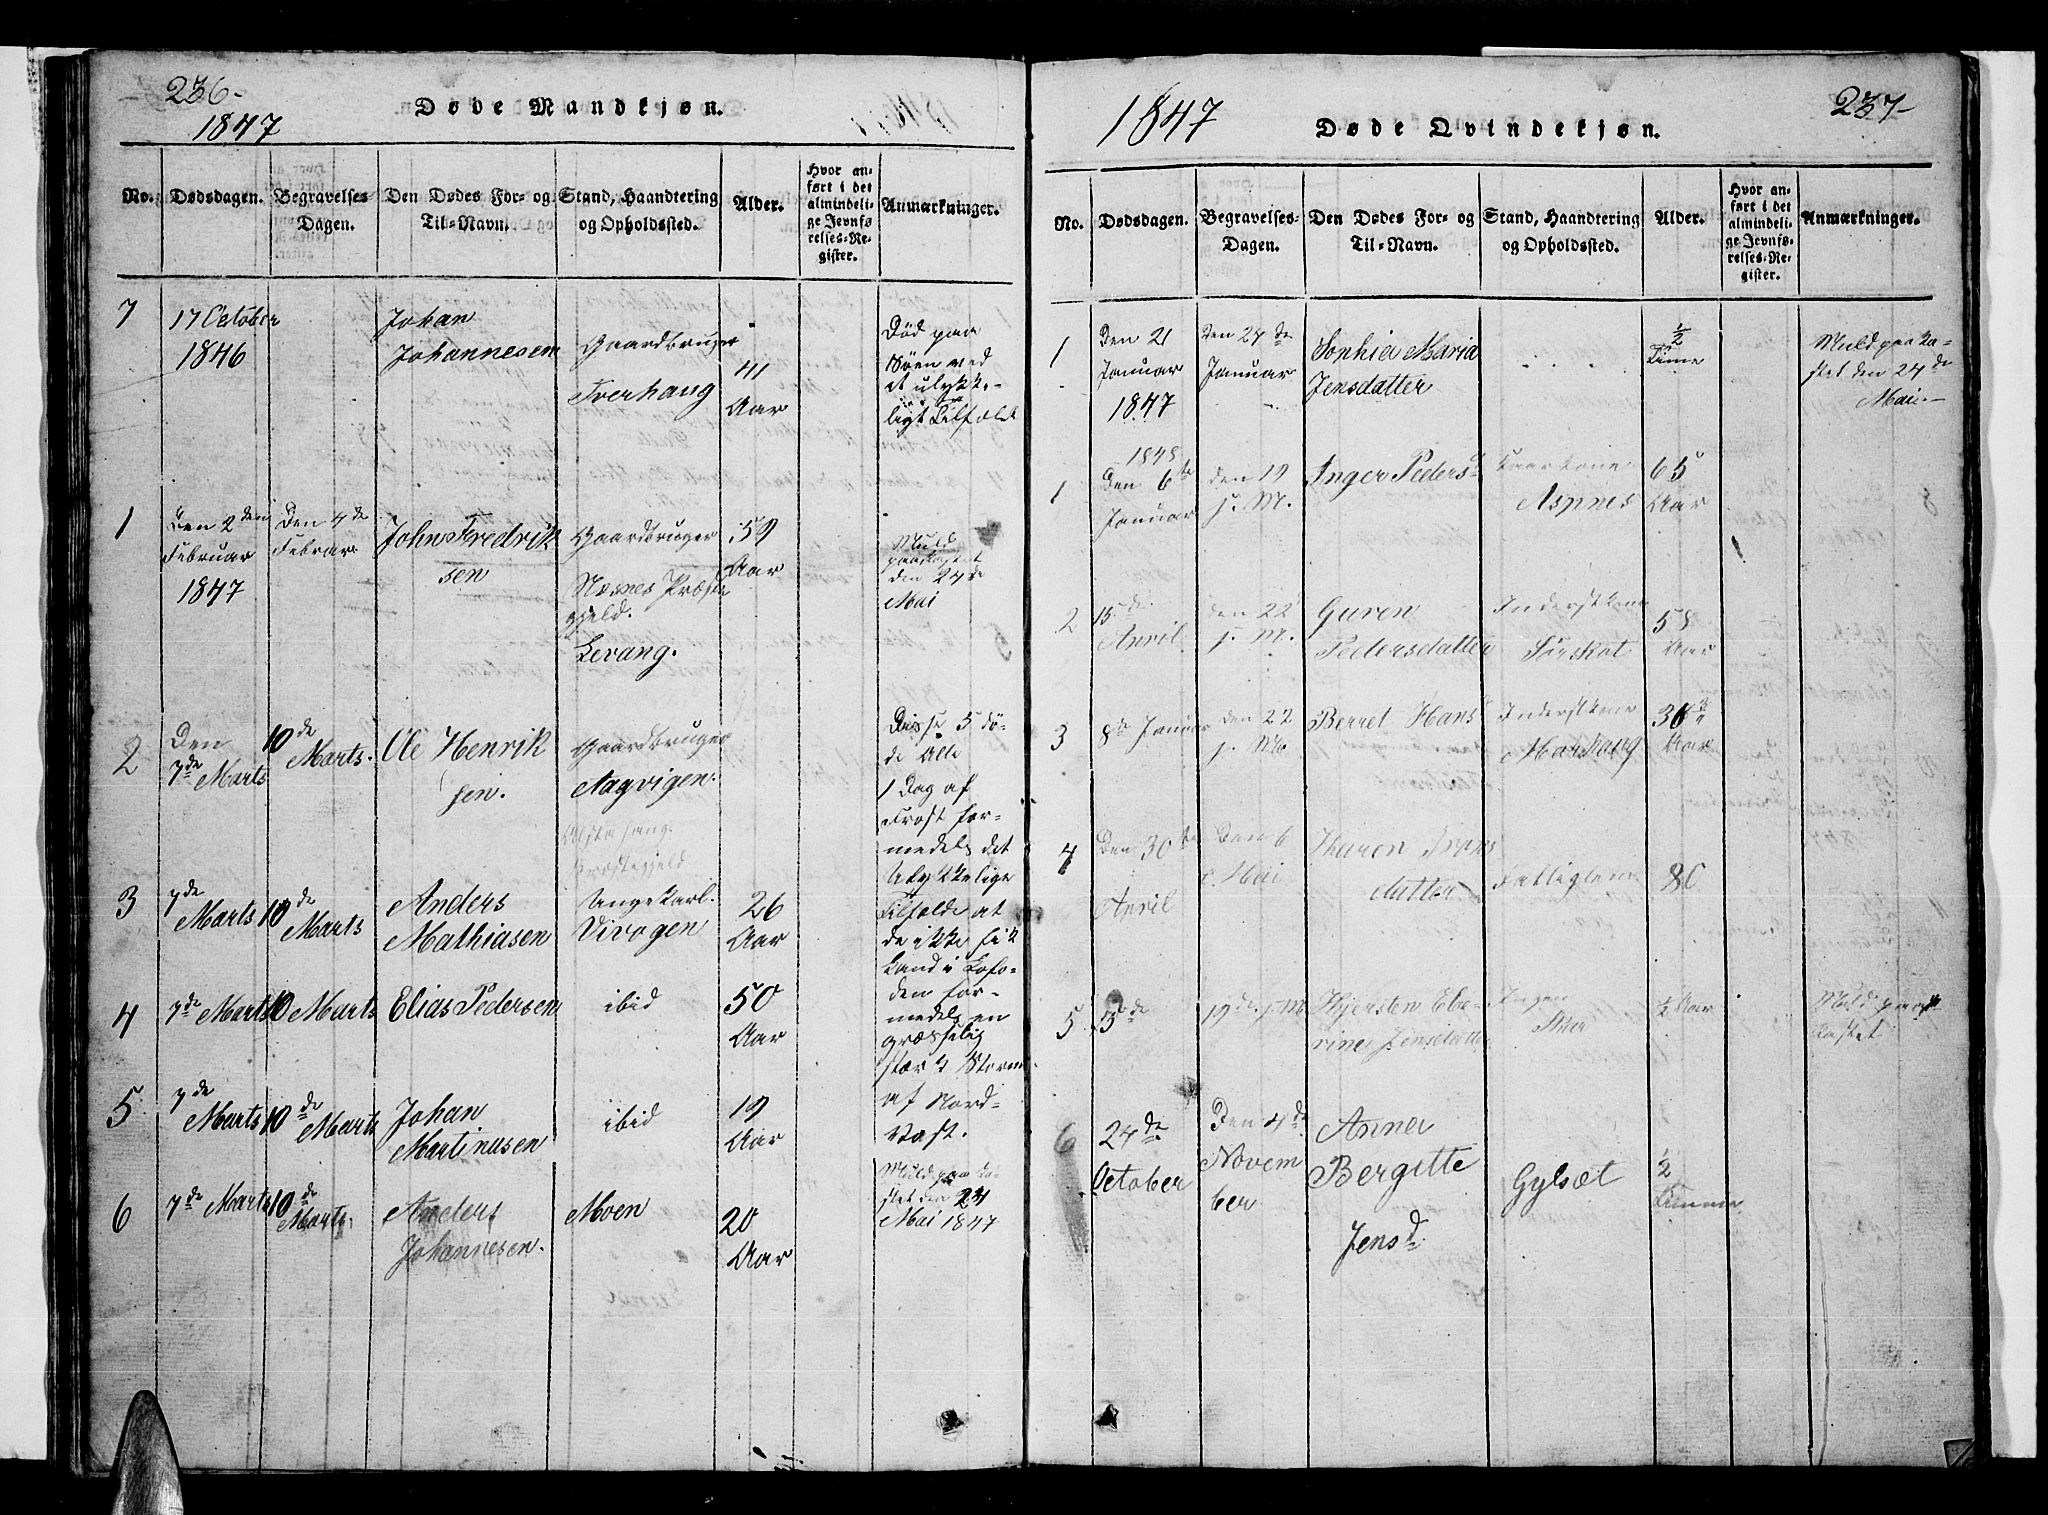 236-
1847
Døde Mandkjøn.
No.
Dødsdagen.
Begravelses-
Dagen.
Den Dødes For- og
Til-Navn.
Stand, Haandtering
og Opholdssted.
Alder.
Hvor an-
ført i det
almindeli-
ge Jevnfø-
relses-Re-
gister.
Anmærkninger.
7
17 October
1846
Johan
Johannesen
Gaardbruger
Tverhaug
41
Aar
Død paa
Søen ved
et ulykke-
ligt Tilfælde
1
Den 2den
Februar
1847
Den 4de
Februar
John Fredrik
sen
Gaardbruger
Næsnes Præste
gjeld.
Levang.
59
Aar
Muld
paakastet
den 24de
Mai
2
Den
7de Marts
10de
Marts.
Ole Henrik
sen.
Gaardbruger
Aagvigen.
Alstahaug
Præstegjeld
Disse 5 dø-
de Alle
1 Dag af
Frost for-
medels det
Ulykkelige
Tilfælde at
de ikke fik
Land i Lofo-
den for-
medels en
græsselig
stærk Storm
af Nord-
Vest.
3
7de
Marts
10de
Marts
Anders
Mathiasen
Ungekarl.
Vivogen
26
Aar
4
7de Marts
10 Marts
Elias Pedersen
ibid
50
Aar
5
7de
Marts
10de
Marts
Johan
Martinusen
ibid
19
Aar
6
7de Marts
10de
Marts
Anders
Johannesen.
Moen
20
Aar
Muld paaka-
stet den 24
Mai 1847
1847
Døde Qvindekjøn.
237-
No.
Dødsdagen.
Begravelses-
Dagen.
Den Dødes For- og
Til-Navn.
Stand, Haandtering
og Opholdssted.
Alder.
Hvor an-
ført i det
almindeli-
ge Jevnfø-
relses-Re-
gister.
Anmærkninger.
1
Den 21
Januar
1847
Den 24de
Januar
Sophia Maria
Jensdatter
1/2
Time
Muld paaka-
stet den 24de
Mai.
1
1848
Den 6te
Januar
den 19
j. M.
Inger Peders
Kaarkone
Aspnes
65
Aar
2
15de
April
den 22
j. M.
Guren
Pedersdatter
Inderstkone
Sørskot
58
Aar
3
8de Januar
den 22
j. M.
Berret Hans
Inderstkone
36
Aar
4
Den 30te
April
Den 6
Mai
Karen
datter
Fattiglem
80
5
3de
19de j. M
Kjersten
rine Jensdatter
1/2 Aar
Muld paa
kastet
6
24de
October
Den 4de
Novem
ber
Anna
Bergitte
Jensd
Gylsæt
1/2
Timme